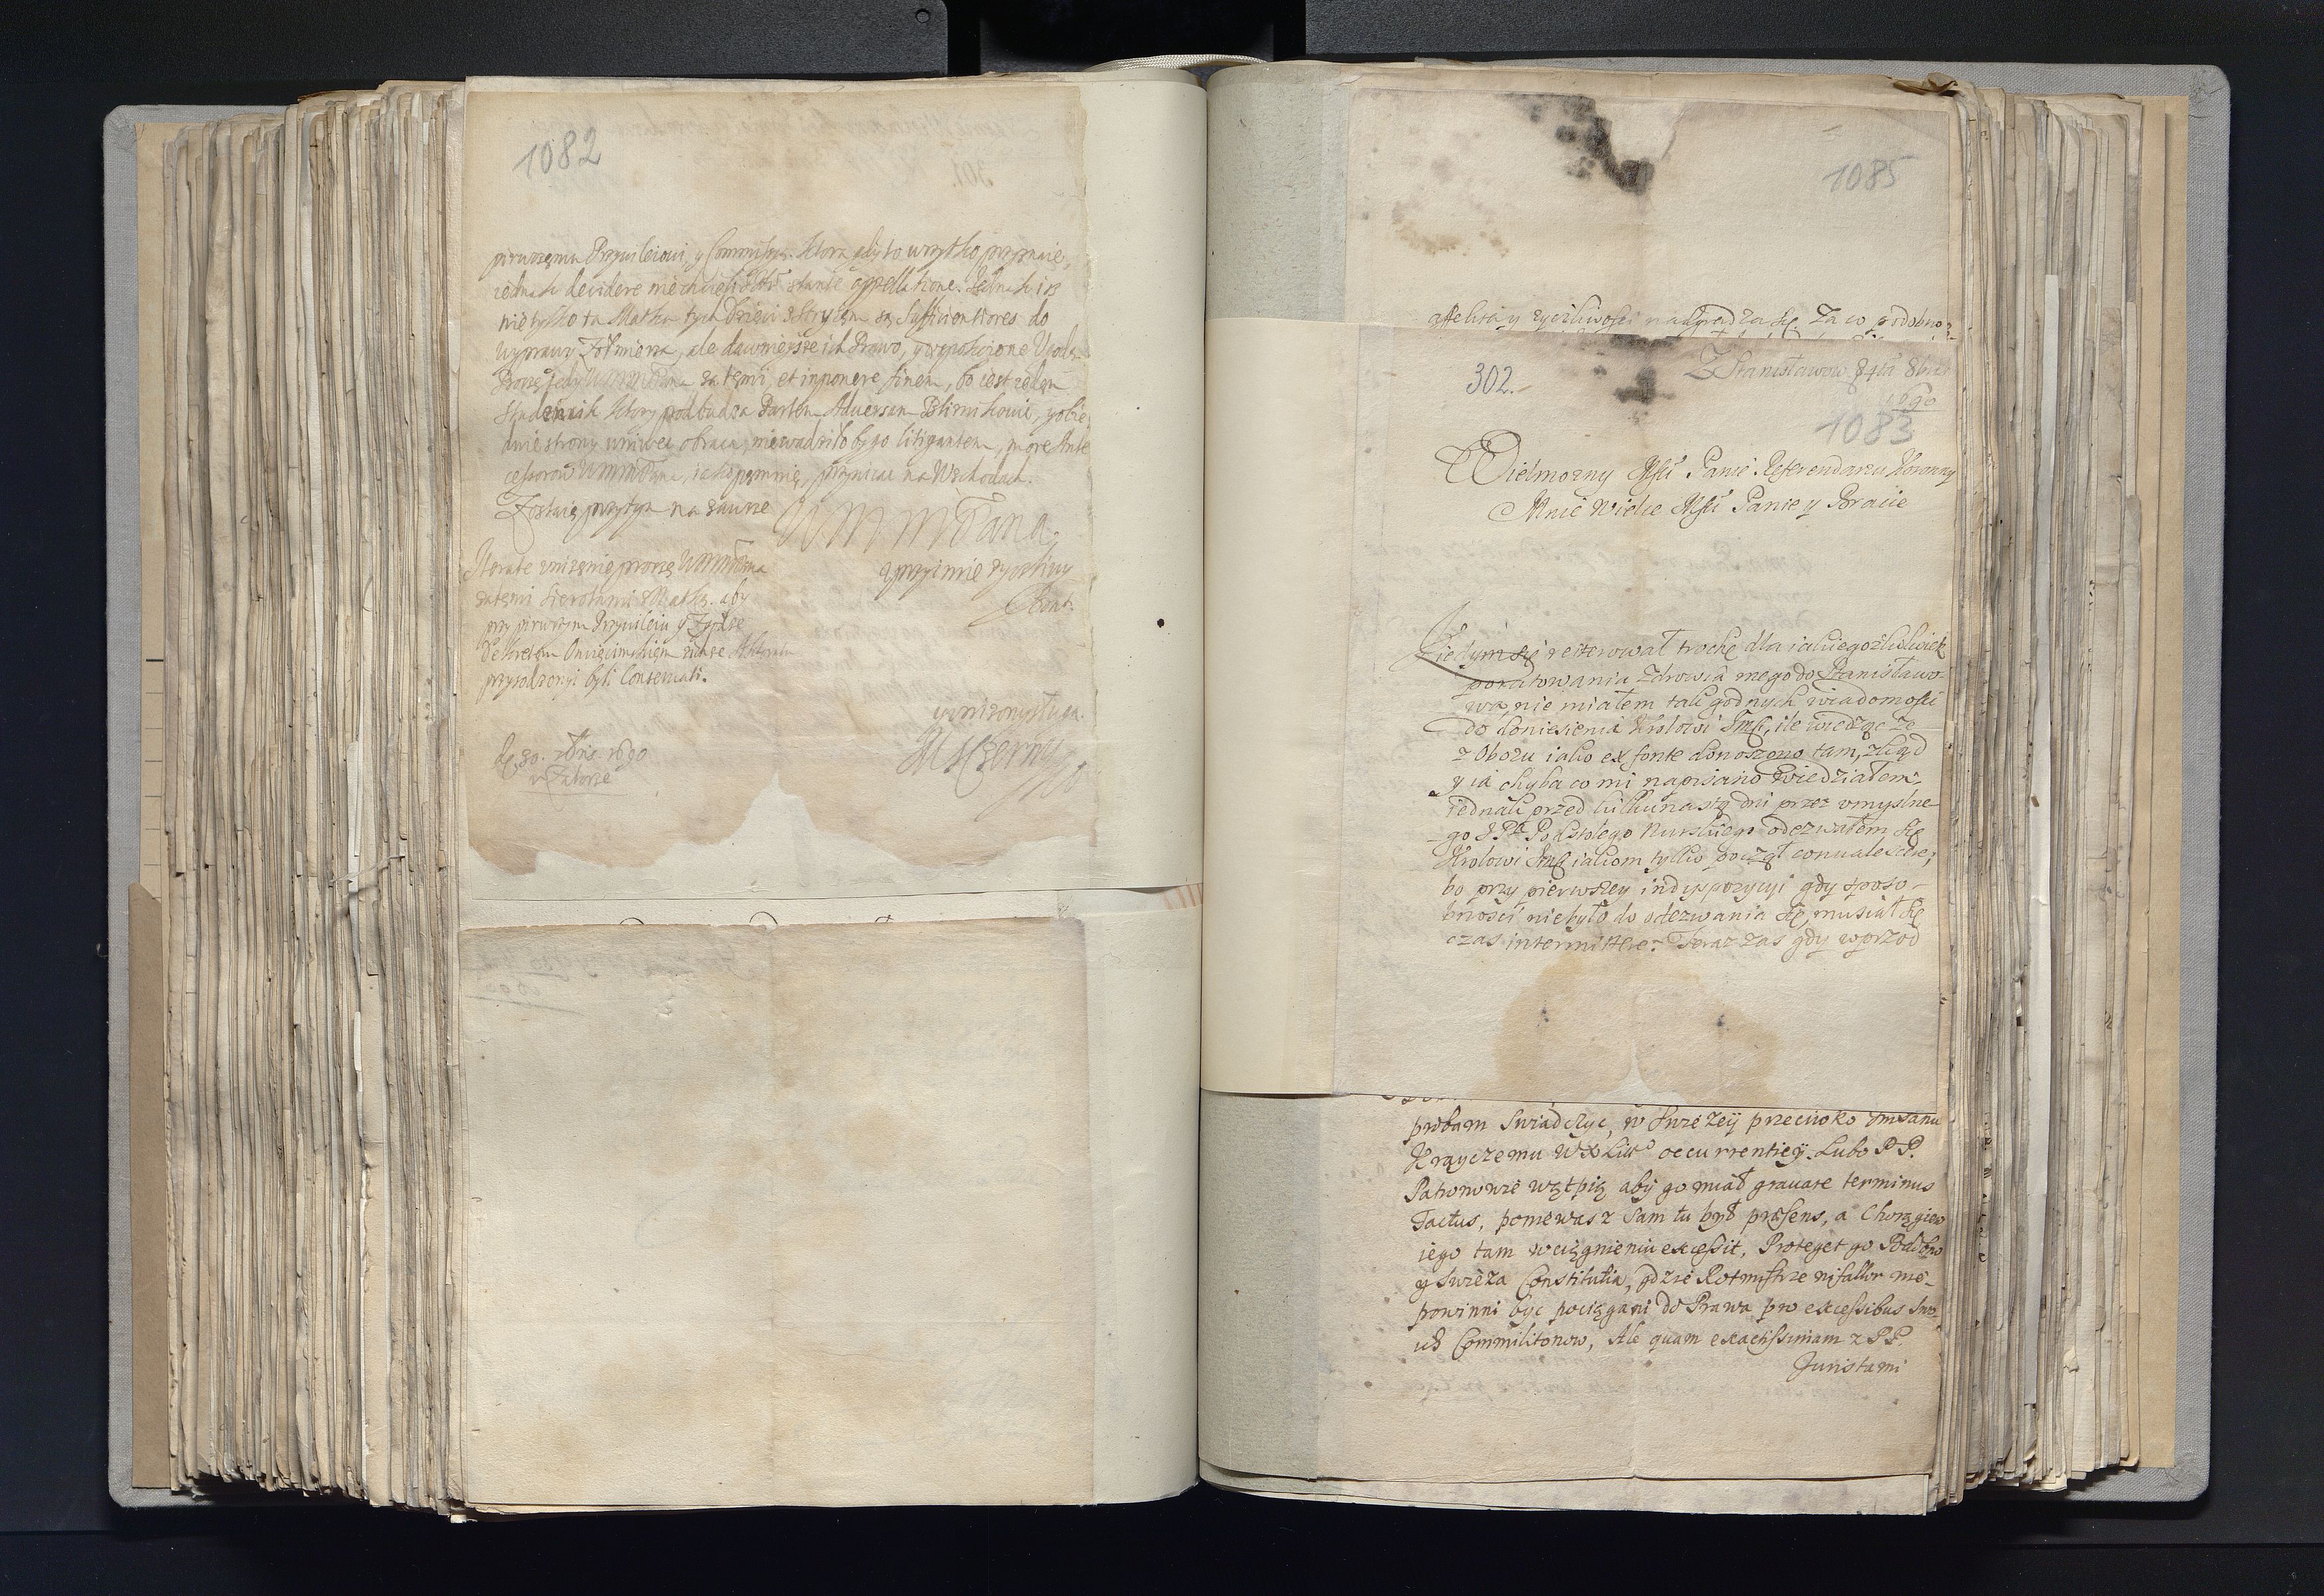 1082
pirwszemu Przywileiowi, y Commissyi. Ktora gdy to wszytko przyznaie,
iednak decidere niechcieli stante appellatione. Jednak isz
nietylko ta Matka tych Dzieci z Stryiem są sufficientiores do
wyprawy Zołnierza, ale dawnieysze ich Prawo,
Proszę tedy WMM Pana za temi, et imponere finem, bo iest ieden
ktory podbudza Partem Aduersam y obie
dwie strony wniwecz obraca, niewadziło by go litigantem, more Ante
cessorow WMMPana, iako pomnię, na Wschodach.
Zostaię przytym na zawsze
WMMPana
uprzeimie zyczliwy
Iterate unizenie proszę WMMPana
zatemi Sierotami y Matką, aby
przy pirwszym Przywileiu y
Dekretem Oswięcimskim
przysądzonym byli conseruati.
unizony sługa
de 30. 1690
w Zatorze
1085
affektu y zyczliwosci nadgradza się. Za co podobno
302.
Z Stanisławow 8bris
1690
1083
Wielmozny Msci Panie Referendarzu Koronny
Mnie Wielce Msci Panie y Bracie
Kiedym się reiterował trochę dla iakiegozkolwiek
poratowania zdrowia mego do Stanisławo-
wa, nie miałem tak godnych wiadomosci
do doniesienia Krolowi Jmsci, ile wiedząc ze
z Obozu iako ex fonte donoszono tam, zkąd
y ia chyba co mi napisano wiedziałem:
iednak przed kilkunastą dni przez vmyslne-
go JPa Podstolego Nurskiego odezwałem się
Krolowi Jmsci iakom tylko począł conualescere;
bo przy pierwszey indyspozycyi gdy sposo-
bnosci niebyło do odezwania się, musiał się
czas intermittere: Teraz zas gdy wprzod
probam swiadczyc, w swiezey przeciwko Jmsanu
Krayczemu WXLitto occurrentiey. Lubo PP.
Patronowie wątpią aby go miał grauare terminus
Tactus, poniewasz sam tu był præsens, a Chorągiew
iego tam w ciągnieniu excessit, Proteget go Podobno
y swieza Constitutia, gdzie Rotmistrze ni fallor nie-
powinni byc pociągani do Prawa pro excessibus swo-
ich Commilitonow, Ale quam exactissimam z PP.
Juristami